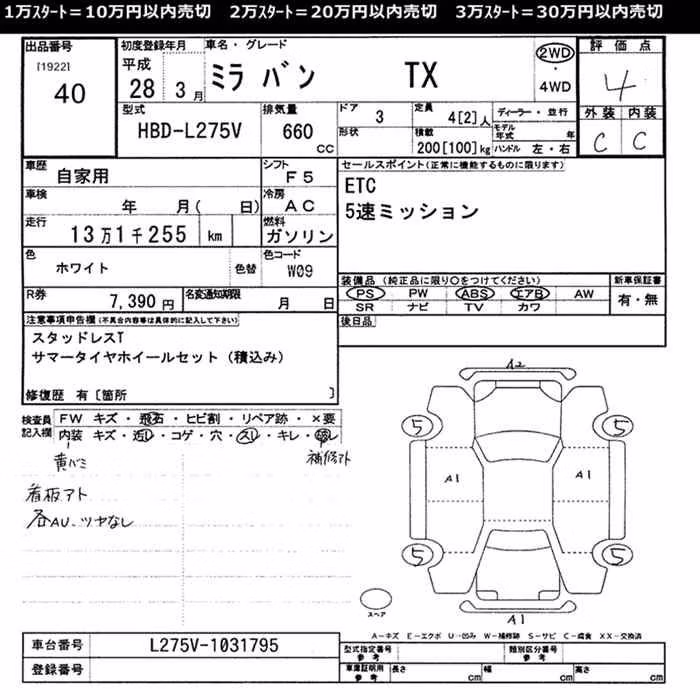 1万ｽﾀｰﾄ＝10万円以内売切　2万ｽﾀｰﾄ＝20万円以内売切　3万ｽﾀｰﾄ＝30万円以内売切
出品番号
[1922]
40
初度登録年月
平成
28 3月
車名・グレード
ミラ バン TX
2WD
・
4WD
評価点
4
外装 内装
C C
型式
HBD-L275V
排気量
660
CC
ドア
3
形状
定員
4[2]人
積載
200[100]kg
ディーラー・並行
モデル年式 年
ハンドル 左・右
車歴
自家用
シフト
F5
車検
年 月( 日)
冷房
AC
走行
13万1千255 km
燃料
ガソリン
色
ホワイト
色替
色コード
W09
R券
7,390円
名変通知期限
月 日
セールスポイント(正常に機能するものに限ります)
ETC
5速ミッション
装備品 (純正品に限り○をつけてください)
PS PW ABS エアB AW
SR ナビ TV カワ
新車保証書
有・無
後日品
注意事項申告欄(不具合内容等は具体的に記入して下さい)
スタッドレスT
サマータイヤホイールセット（積込み）
修復歴 有〔箇所 〕
検査員記入欄
FW キズ・飛石・ヒビ割・リペア跡・×要
内装 キズ・汚レ・コゲ・穴・スレ・キレ・破レ
黄バミ
補修アト
看板アト
各AU、ツヤなし
A2
5
5
A1
A1
5
5
スペア
A1
A－キズ E－エクボ U－凹み W－補修跡 S－サビ C－腐食 XX－交換済
車台番号
L275V-1031795
登録番号
型式指定番号
参考
類別区分番号
参考
車庫証明用
参考
長さ cm
幅 cm
高さ cm